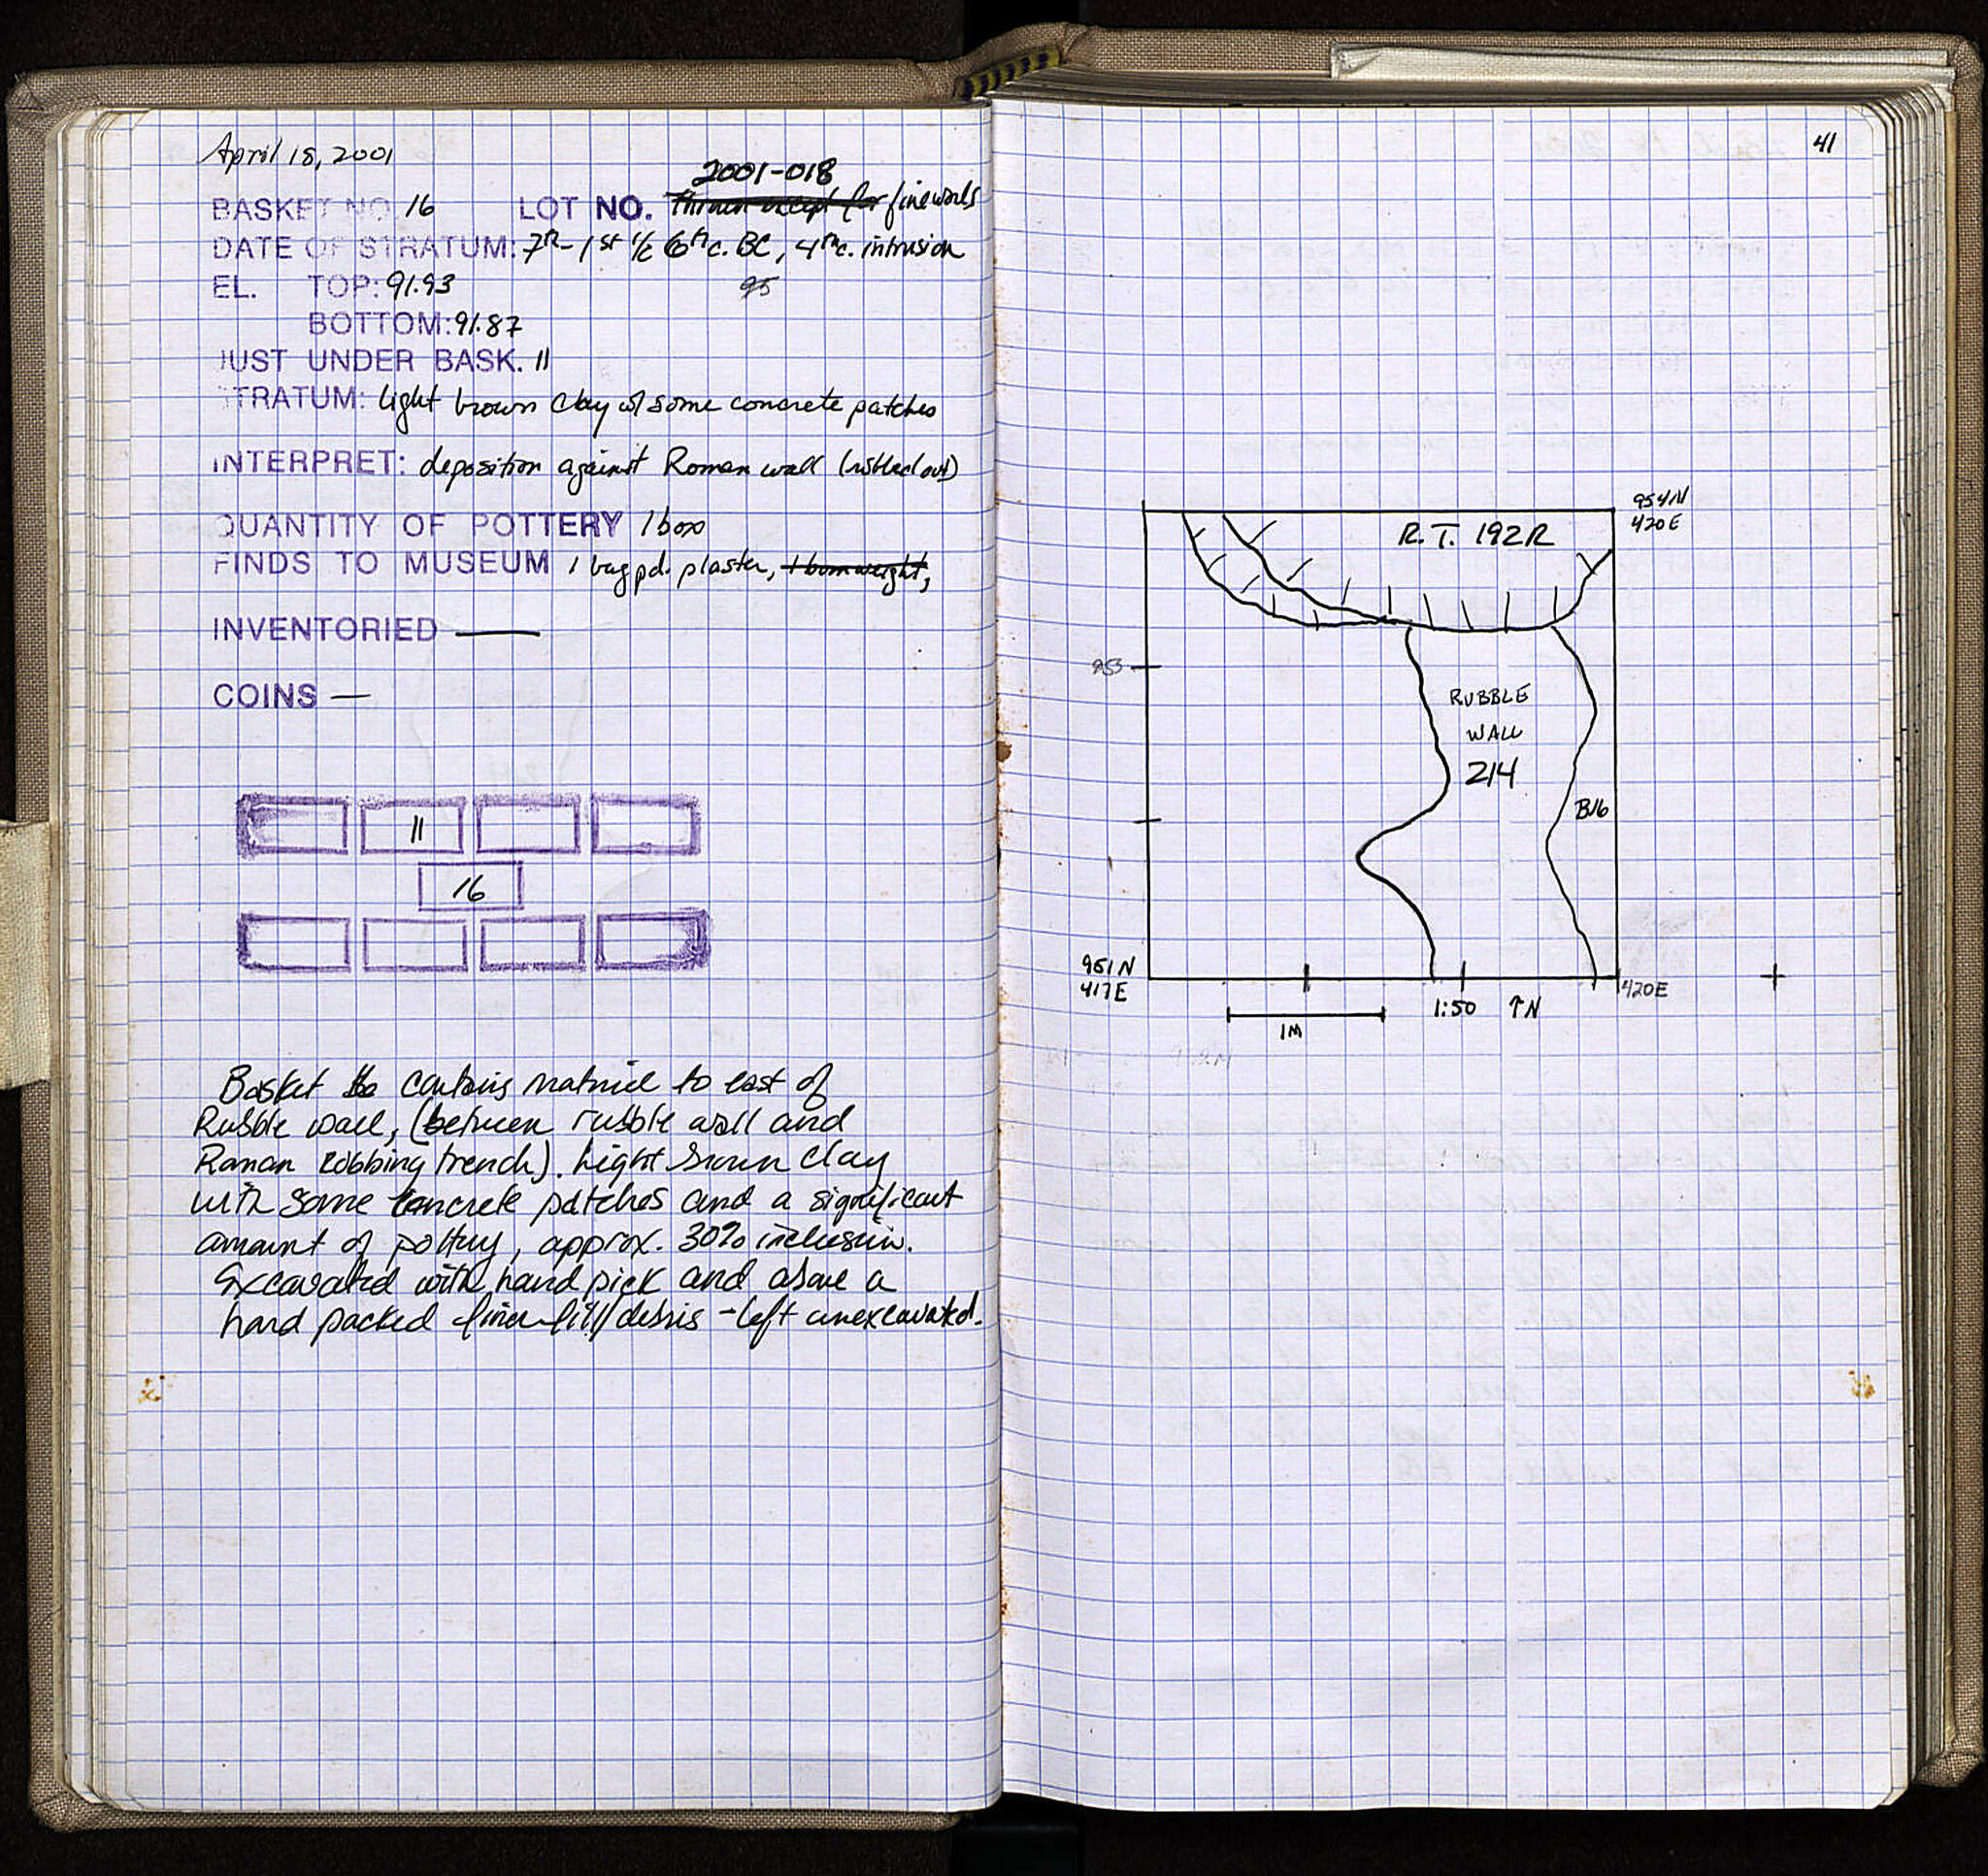 April 18, 2001
2001-018
BASKET NO. 16 LOT NO. Thrown except for finewares
DATE OF STRATUM: 7th - 1st 1/2 6th c. BC, 4th c. intrusion
EL. TOP: 91.93 95
BOTTOM: 91.87
JUST UNDER BASK. 11
STRATUM: light brown clay w/ some concrete patches
INTERPRET: deposition against Roman wall (robbed out)
QUANTITY OF POTTERY 1 box
FINDS TO MUSEUM 1 bag pd. plaster, 1 loomweight,
INVENTORIED —
COINS —
11
16
Basket contains material to east of
Rubble wall, (between rubble wall and
Roman robbing trench). Light brown clay
with some concrete patches and a significant
amount of pottery, approx. 30% inclusion.
Excavated with hand pick and above a
hard packed finer fill/debris - left unexcavated.
41
954N
420E
R.T. 192R
953
RUBBLE
WALL
214
B16
951N
417E
420E
1:50 ↑N
1M